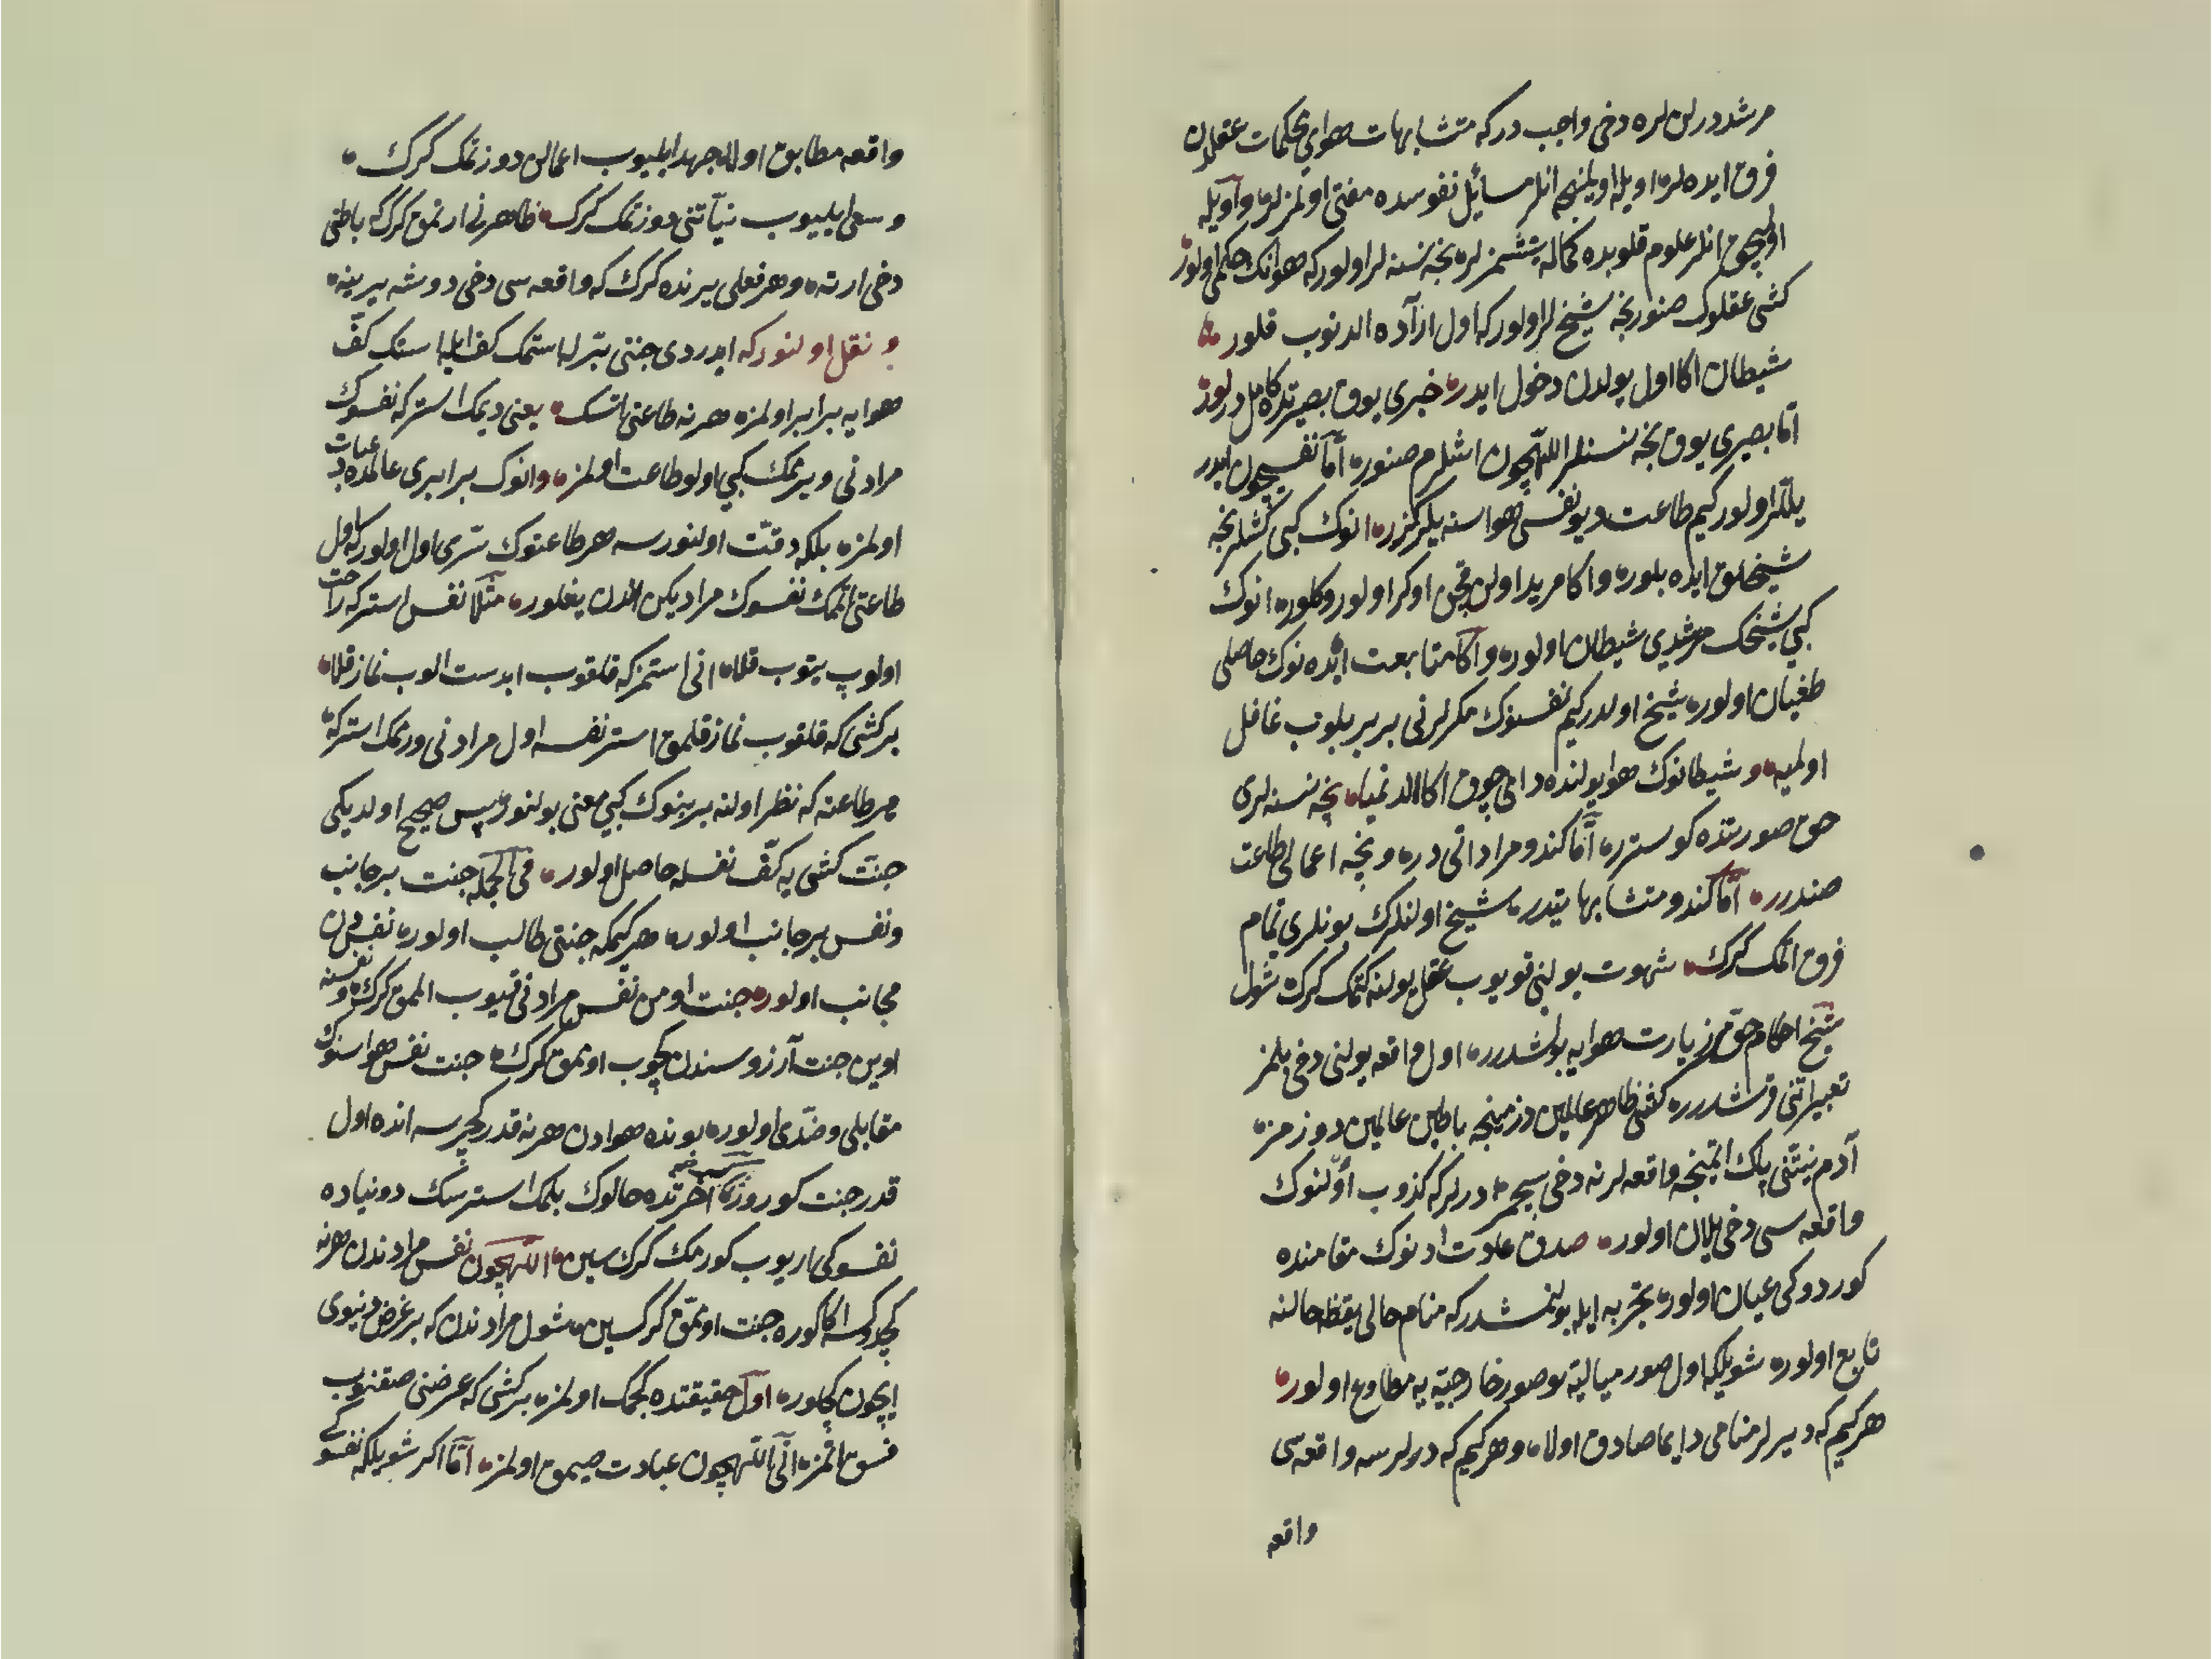 مرشد درلن لره دخی واجب در که متشابهات هوایی محکمات عقلدن
فرق ایده لر اویله اویلینجه انلر مسائل نفوسده مفتی اولمزلر واویله
اولیجق انلر علوم قلوبده کماله یتشمزلر نجه نسنه لر اولور که هوانک حکمی اولور
کشی عقلوک صنور نجه شیخ لر اولور که اول ارآده الدنوب قلور
شیطان اکا اول یولدن دخول ایدر خبری یوق بصیرتده کامل درلور
اما بصیری یوق نجه نسنلر اللهیچون اشلرم صنور اما نفسیچون ایدر
یلتلر اولور کیم طاعت دیو نفسی هواسنه یلر کزر انوک کبی کشلر نجه
شیخلق ایده بلور واکا مرید اولن قچن اوکر اولور وکلور انوک
کبی شیخک مرشدی شیطان اولور واکا متابعت ایده نوک حاصلی
طغیان اولور شیخ اولدر کیم نفسنوک مکرلرنی بربر بلوب غافل
اولمیه وشیطانوک هوا یولنده دامی چوق اکا الدنمیا نجه نسنه لری
حق صورتنده کوستره اما کندو مراداتی در ونجه اعمالی طاعت
صندرر اما کندو متشابهاتیدر شیخ اولنلرک بونلری تمام
فرق اتمک کرک شهوت یولنی قویوب عقل یولنه کتمک کرک شول
شیخ احکام حقمز زیارت هوایه بولشدرر اول واقعه یولنی دخی بلمز
تعبیراتنی قرشدرر کشی ظاهر عالمین دزمینجه باطن عالمین دوزمز
آدم نیتنی پاک اتمینجه واقعه لرنه دخی سیچمز درلر که کذوب اولنوک
واقعه سی دخی یلان اولور صدق علامت ادنوک مقامنده
کوردوکی عیان اولور تجربه ایله بولنمشدر که منام حالی یقظه حالنه
تابع اولور شویلکه اول صور میالیه بو صور خارجیه یه مطاوع اولور
هرکیم که دیرلر منامی دایما صادق اولا وهرکیم که درلرسه واقعه سی
واقعه
واقعه مطابق اولا جهد ایلیوب اعمالن دوزتمک کرک
وسعی ایلیوب نیاتنی دوزتمک کرک ظاهرنی ارتمق کرک که باطنی
دخی ارته وهر فعلی یرنده کرک که واقعه سی دخی دوشه یرینه
ونقل اولنور که ایدردی جنتی بترلبا ستمک کف ایله استک کف
هوایه برابر اولمز هر نه طاعتی اتسک یعنی دیمک استر که نفسوک
مرادنی ویرمک کبی اولو طاعت اولمز وانوک برابری عالمده بر عبادت
اولمز بلکه دقت اولنورسه هر طاعتوک سری اول اولور که اول
طاعتی اتمک نفسوک مرادیکن الدن یغلور مثلا نفس استر که راحت
اولوپ یتوب قلا انی استمز که قلقوب ابدست الوب نماز قلا
بر کشی که قلقوب نماز قلمق استر نفسه اول مرادنی ورمک استر که
هر طاعته که نظر اولنه بر بنوک کبی معنی بولنور پس صحیح اولدیکی
جنت کشی یه کف نفسله حاصل اولور فی الجمله جنت بر جانب
ونفس بر جانب اولور هر کیمکه جنتی طالب اولور نفسدن
مجانب اولور جنت اومن نفس مرادنی قیوب الممق کرک ونفسنه
اوین جنت آرزوسندن کچوب اوممق کرک جنت نفس هواسنوک
مقابلی وضدی اولور بونده هوادن هر نه قدر کچرسه انده اول
قدر جنت کوروز اخرتده حالوک بلمک استرسک دونیاده
نفسوکی اریوب کورمک کرک سین اللهیچون نفس مرادندن هر نه
کچدوکسه اکا کوره جنت اوممق کرکسین شول مرادندن که بر غرض دنیوی
ایچون کچلور اول حقیقتده کچمک اولمز بر کشی که عرضنی صقنوب
فسق اتمز انی اللهیچون عبادت صیمق اولمز اما اکر شویلکه نفسوکی